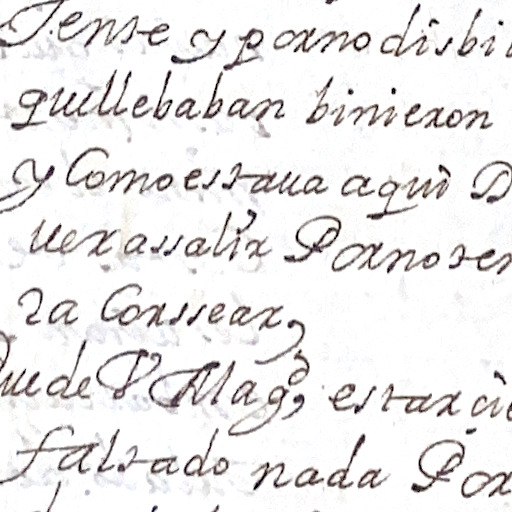 Tente y por no disbi
qullebaban binieron
y Como estaua aqui D
uer a ssalir Por no ten
ra Corssear,
Puede V Mag.d estar cie
faltado nada Por